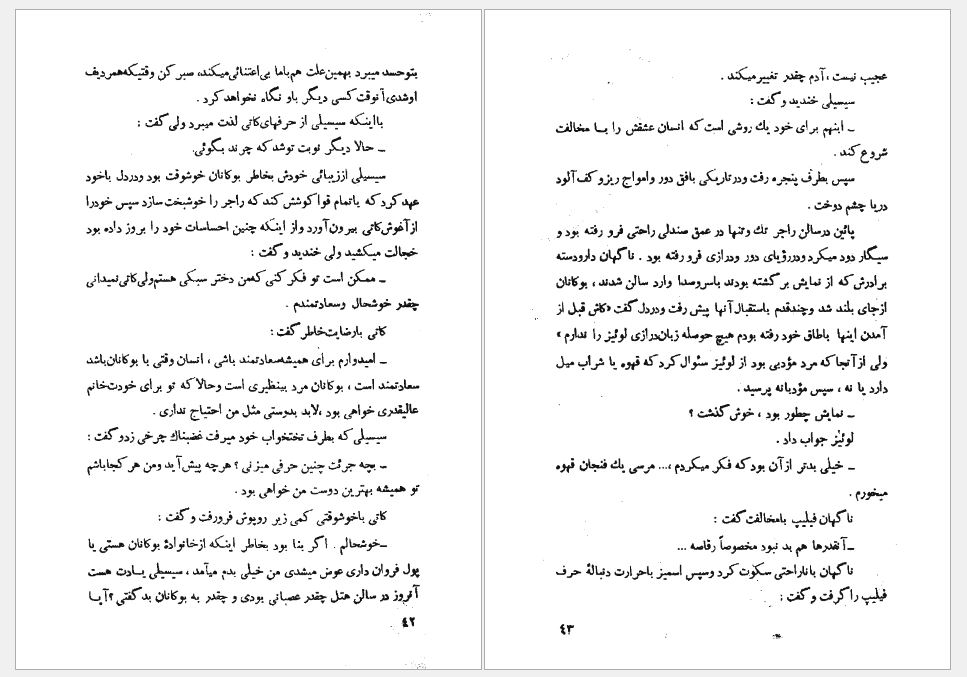 بتوحسد میبرد بهمین‌علت هم‌باما بی‌اعتنائی‌میکند، صبر کن وقتیکه‌همردیف
اوشدی‌آنوقت کسی دیگر باو نگاه نخواهد کرد .
بااینکه سیسیلی از حرفهای‌کاتی لذت میبرد ولی گفت :
ــ حالا دیگر نوبت توشد که چرند بگوئی.
سیسیلی اززیبائی خودش بخاطر بوکانان خوشوقت بود ودردل باخود
عهد کرد که باتمام قوا کوشش کند که راجر را خوشبخت سازد سپس خودرا
ازآغوش‌کاتی بیرون‌آورد واز اینکه چنین احساسات خود را بروز داده بود
خجالت میکشید ولی خندید و گفت :
ــ ممکن است تو فکر کنی که‌من دختر سبکی هستم‌ولی‌کاتی نمیدانی
چقدر خوشحال وسعادتمندم .
کاتی بارضایت‌خاطر گفت :
ــ امیدوارم برای همیشه‌سعادتمند باشی ، انسان وقتی با بوکانان‌باشد
سعادتمند است ، بوکانان مرد بینظیری است وحالا که تو برای خودت‌خانم
عالیقدری خواهی بود ،لابد بدوستی مثل من احتیاج نداری .
سیسیلی که بطرف تختخواب خود میرفت غضبناك چرخی زدو گفت :
ــ بچه جرئت چنین حرفی میزنی ؟ هرچه پیش‌آید ومن هر کجاباشم
تو همیشه بهترین دوست من خواهی بود .
کاتی باخوشوقتی کمی زیر روپوش فرورفت و گفت :
ــخوشحالم . اگر بنا بود بخاطر اینکه ازخانوادهٔ بوکانان هستی یا
پول فروان داری عوض میشدی من خیلی بدم میآمد ، سیسیلی یادت هست
آنروز در سالن هتل چقدر عصبانی بودی و چقدر به بوکانان بد گفتی ؟ آیا
٤٢
عجیب نیست ، آدم چقدر تغییرمیکند .
سیسیلی خندید و گفت :
ــ اینهم برای خود یك روشی است که انسان عشقش را با مخالفت
شروع کند .
سپس بطرف پنجره رفت ودرتاریکی بافق دور وامواج ریزو کف‌آلود
دریا چشم دوخت .
پائین درسالن راجر تك وتنها در عمق صندلی راحتی فرو رفته بود و
سیگار دود میکرد ودررؤیای دور ودرازی فرو رفته بود . ناگهان دارودسته
برادرش که از نمایش بر گشته بودند باسروصدا وارد سالن شدند ، بوکانان
ازجای بلند شد وچندقدم باستقبال آنها پیش رفت ودردل گفت «کاش قبل از
آمدن اینها باطاق خود رفته بودم هیچ حوصله زبان‌درازی لوئیز را ندارم »
ولی ازآنجا که مرد مؤدبی بود از لوئیز سئوال کرد که قهوه یا شراب میل
دارد یا نه ، سپس مؤدبانه پرسید .
ــ نمایش چطور بود ، خوش گذشت ؟
لوئیز جواب داد .
ــ خیلی بدتر ازآن بود که فکر میکردم ،... مرسی یك فنجان قهوه
میخورم .
ناگهان فیلیپ بامخالفت گفت :
ــآنقدرها هم بد نبود مخصوصاً رقاصه ...
ناگهان باناراحتی سکوت کرد وسپس اسمیز باحرارت دنبالهٔ حرف
فیلیپ را گرفت و گفت :
٤٣